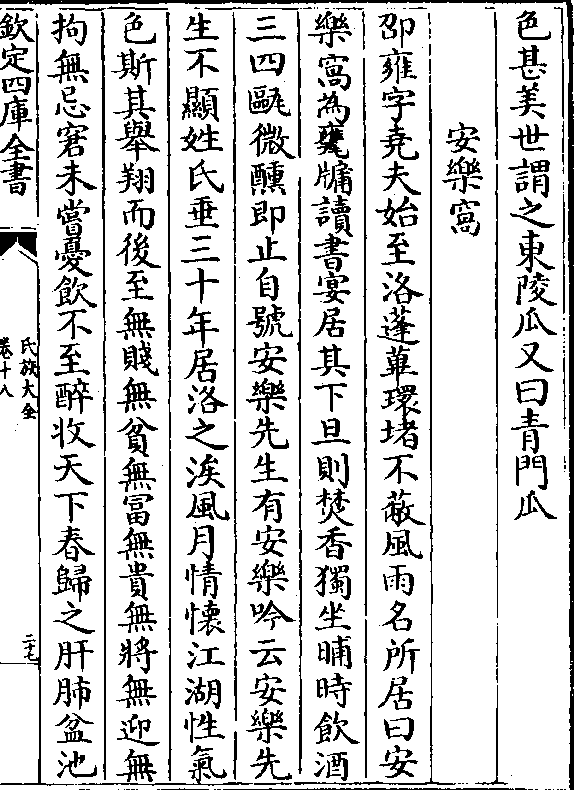 色甚美世謂之東陵瓜又曰青門瓜
安樂窩
邵雍字堯夫始至洛蓬蓽環堵不蔽風雨名所居曰安
樂窩為甕牖讀書宴居其下旦則焚香獨坐晡時飲酒
三四甌微醺即止自號安樂先生有安樂吟云安樂先
生不顯姓氏垂三十年居洛之涘風月情懷江湖性氣
色斯其舉翔而後至無賤無貧無冨無貴無將無迎無
拘無忌窘未嘗憂飲不至醉收天下春歸之肝肺盆池
欽定四庫全書
氏族大全
卷十八
二十七